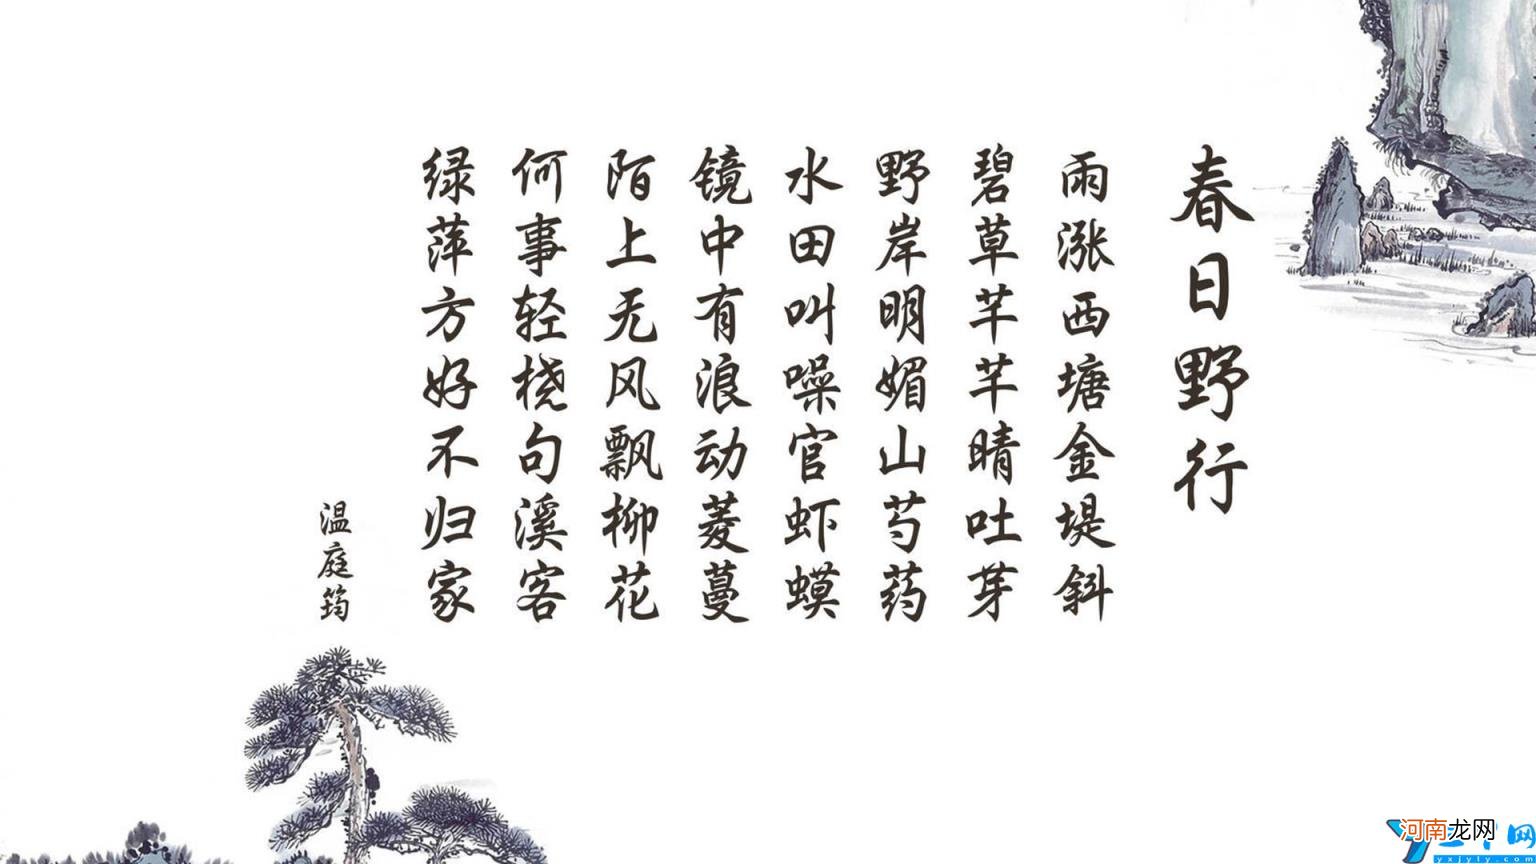 春日野行
雨涨西塘金堤斜
碧草芊芊晴吐芽
野岸明媚山芍药
水田叫噪官虾蟆
镜中有浪动菱蔓
陌上无风飘柳花
何事轻桡句溪客
绿萍方好不归家
温庭筠
河南龙网
yxjyly.com